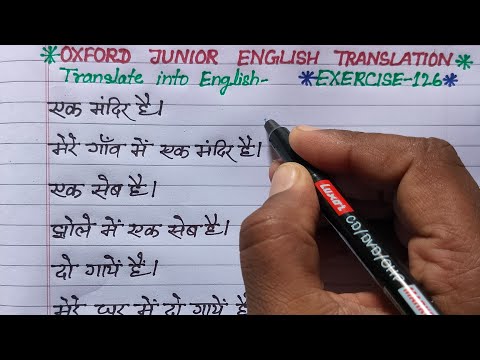 *OXFORD JUNIOR ENGLISH TRANSLATION*
Translate into English- *EXERCISE-126*
एक मंदिर है।
मेरे गाँव में एक मंदिर है।
एक सेब है।
झोले में एक सेब है।
दो गायें हैं।
मेरे घर में दो गायें हैं
LUXOR
CD/DVD/OHP